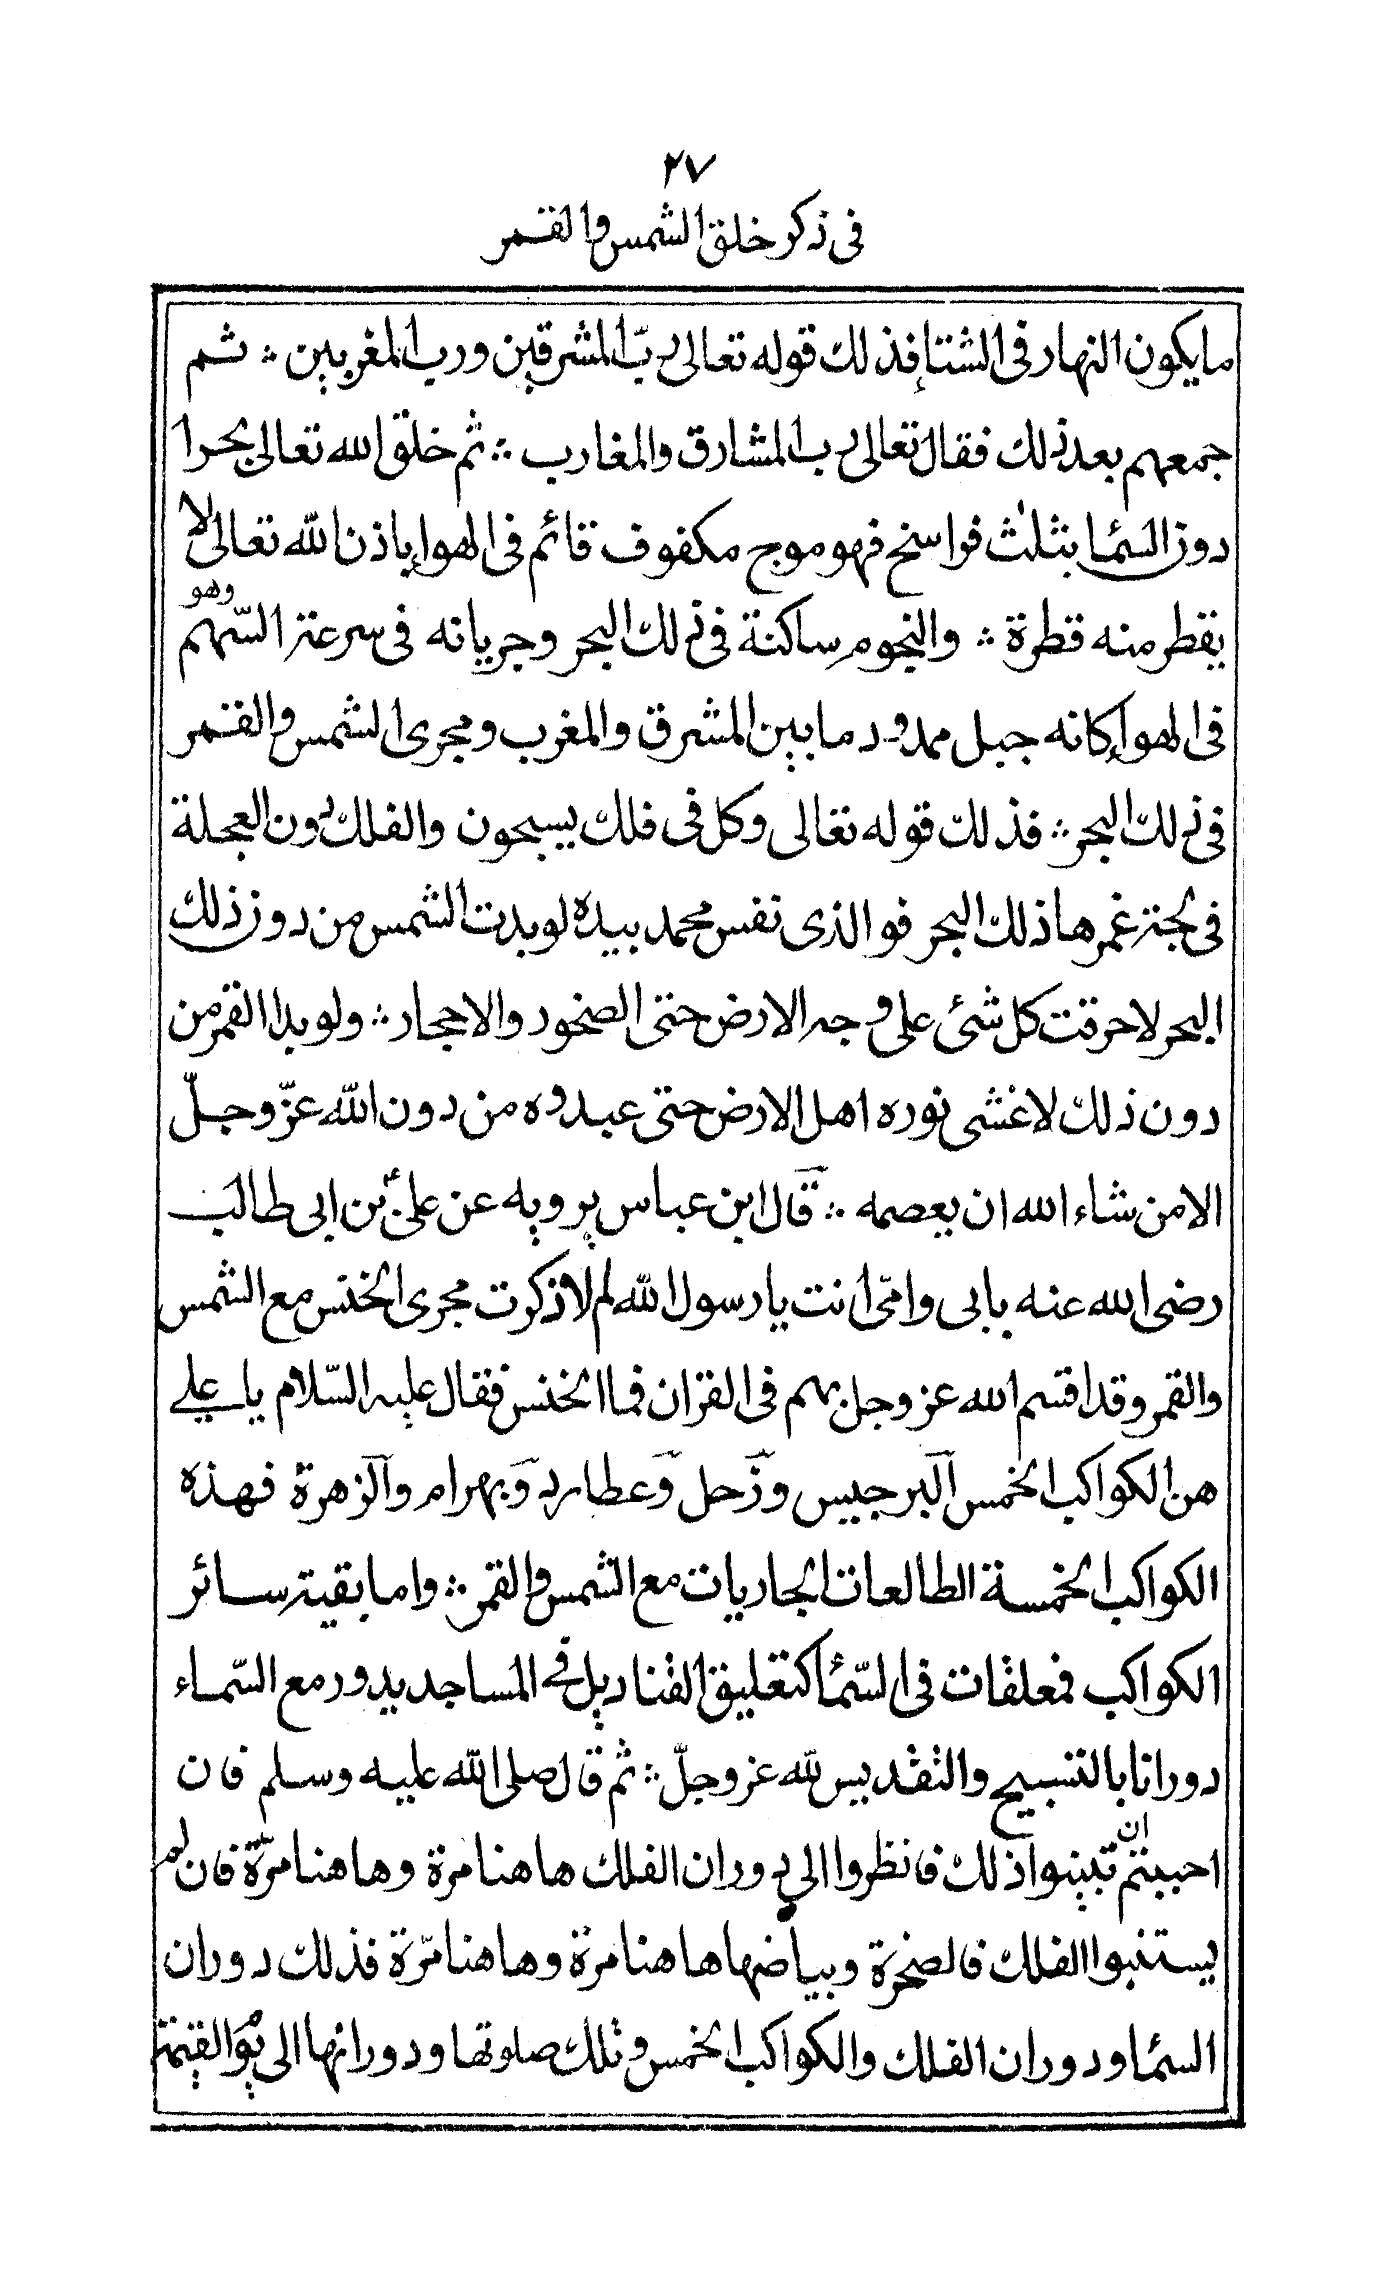 ٢٧
فى ذكر خلق الشمس والقمر
ما يكون النهار فى الشتاء فذلك قوله تعالى ربّ المشرقين ورب المغربين ∴ ثم
جمعهم بعد ذلك فقال تعالى رب المشارق والمغارب ∴ ثم خلق الله تعالى بحرا
دون السماء بثلث فراسخ فهو موج مكفوف قائم فى الهواء باذن الله تعالى لا
يقطر منه قطرة ∴ والنجوم ساكنة فى ذلك البحر وجريانه فى سرعة السّهم وهو
فى الهواء كانه جبل ممدود ما بين المشرق والمغرب ومجرى الشمس والقمر
فى ذلك البحر ∴ فذلك قوله تعالى وكل فى فلك يسبحون والفلك دون العجلة
فى لجة غمرها ذلك البحر فوالذى نفس محمد بيده لو بدت الشمس من دون ذلك
البحر لاحرقت كل شئ على وجه الارض حتى الصخود والاحجار ∴ ولو بدا القمر من
دون ذلك لاغشى نوره اهل الارض حتى عبدوه من دون الله عزّ وجلّ
الا من شاء الله ان يعصمه ∴ قال ابن عباس يرويه عن علىّ بن ابى طالب
رضى الله عنه بابى وامّى انت يا رسول الله لم لا ذكرت مجرى الخنس مع الشمس
والقمر وقد اقسم الله عز وجل بهم فى القران فما الخنس فقال عليه السّلام يا على
هن الكواكب الخمس البرجيس وزحل وعطارد وبهرام والزهرة فهذه
الكواكب الخمسة الطالعات الجاريات مع الشمس والقمر ∴ واما بقية سائر
الكواكب فمعلقات فى السّماء كتعليق القناديل فى المساجد يدور مع السّماء
دورانا بالتسبيح والتقديس لله عز وجلّ ∴ ثم قال صلى الله عليه وسلم فان
احببتم ان تبينوا ذلك فانظروا الى دوران الفلك هاهنا مرة وهاهنا مرّة فان لم
يستنبوا الفلك فالصخرة وبياضها هاهنا مرة وهاهنا مرّة فذلك دوران
السماء ودوران الفلك والكواكب الخمس وتلك صلوتها ودورانها الى يوم القيٰمة